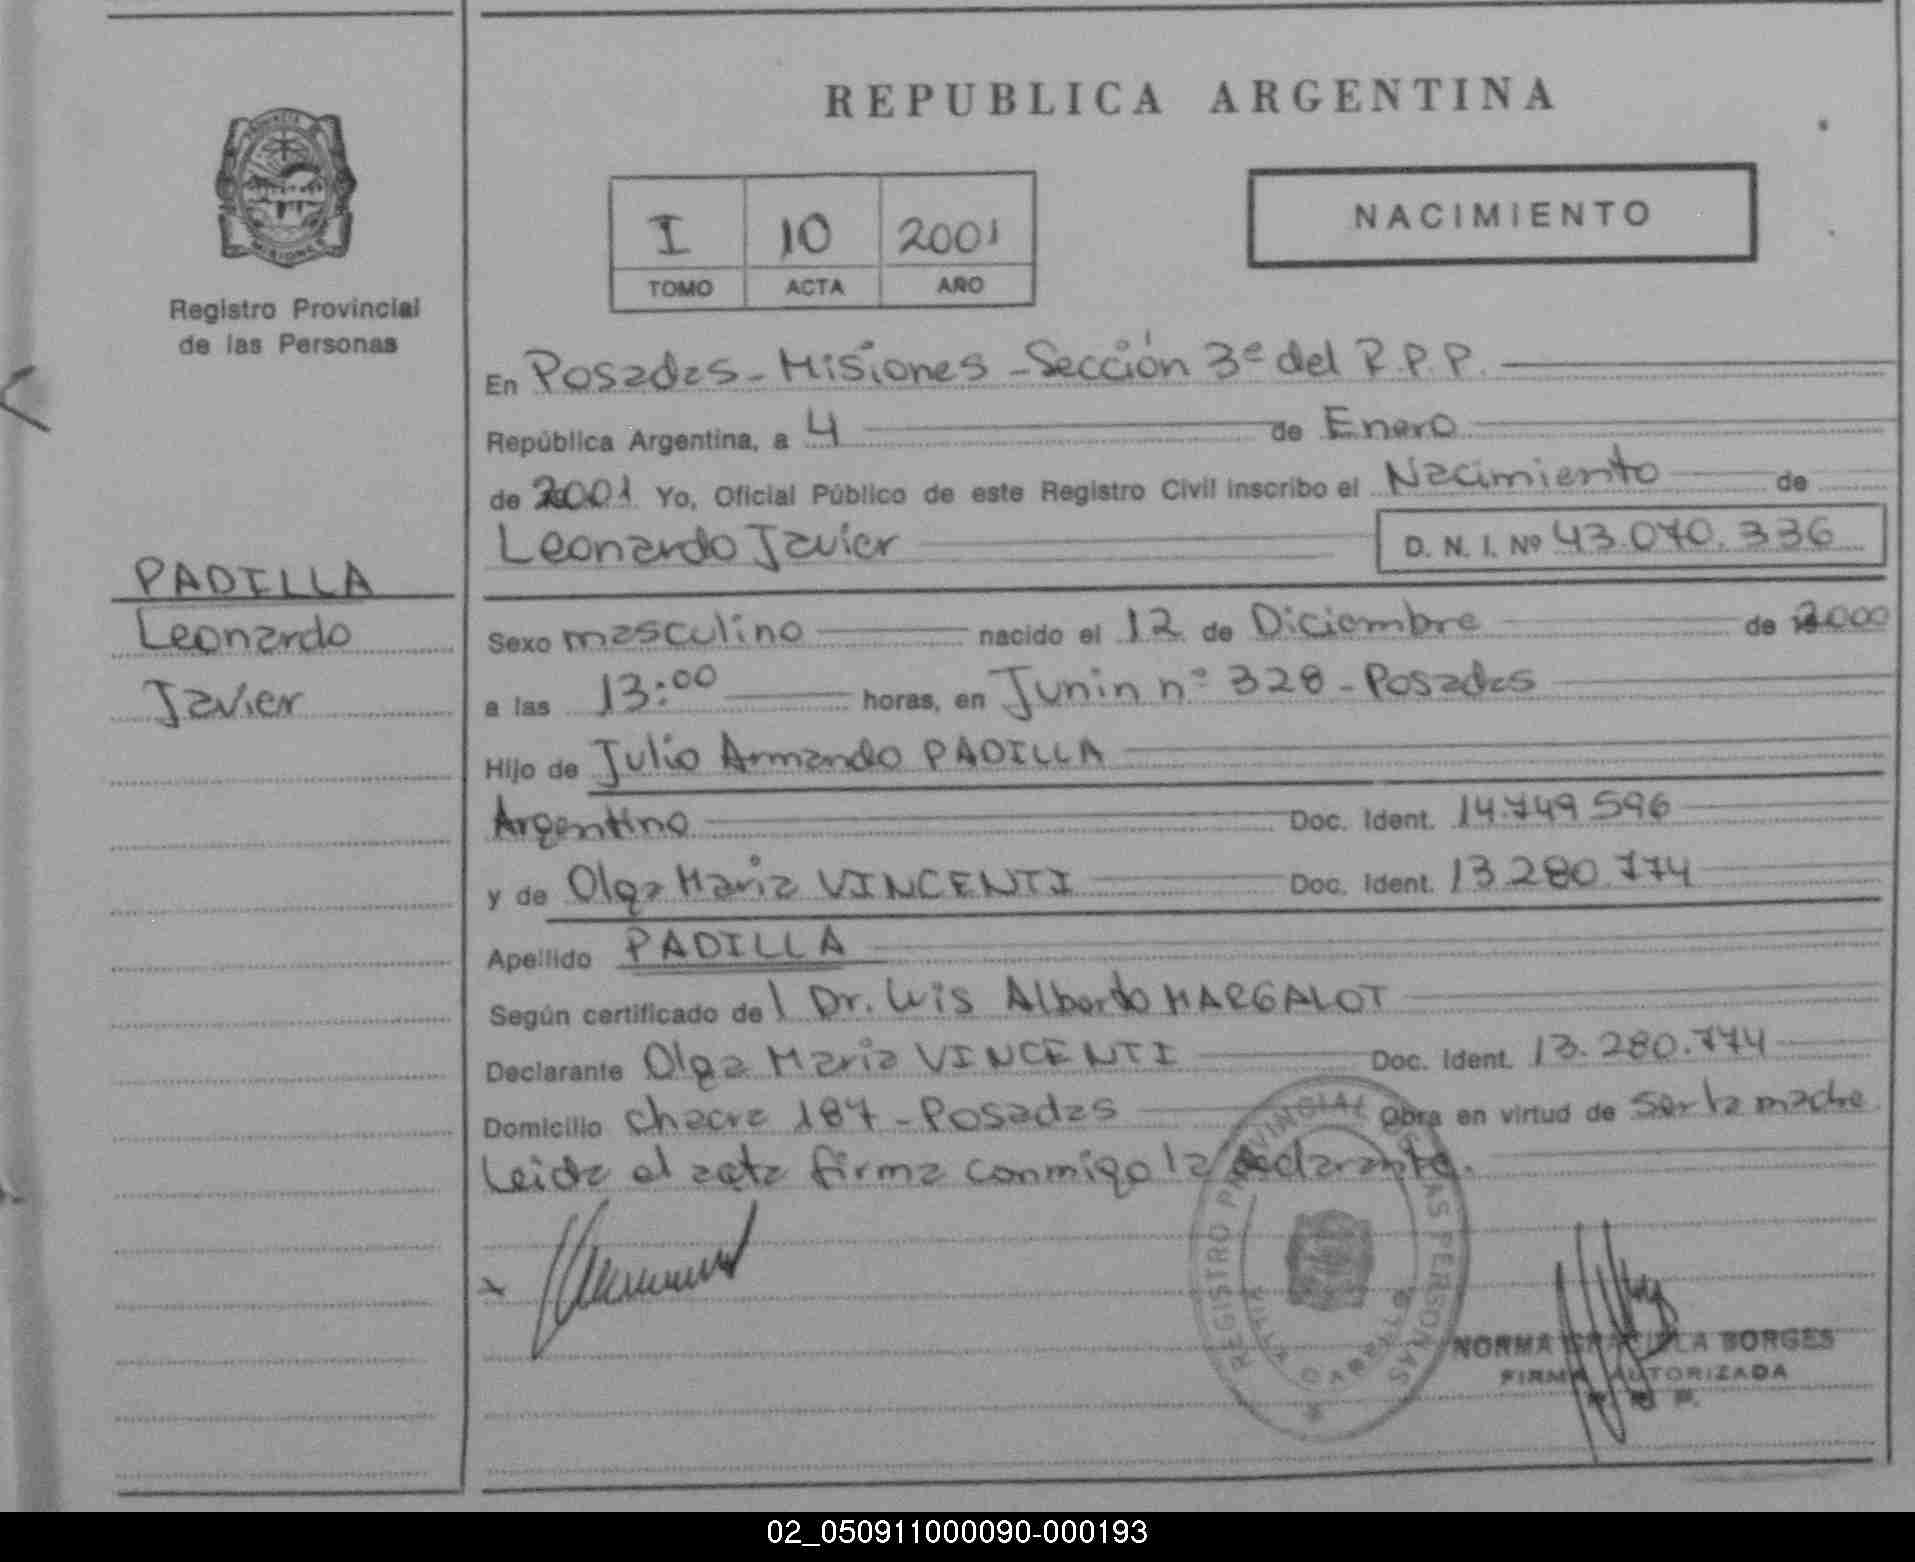 REPUBLICA ARGENTINA
NACIMIENTO
I 10 2001
TOMO ACTA AÑO
Registro Provincial
de las Personas
En Posadas - Misiones - Sección 3ª del R.P.P.
República Argentina, a 4 de Enero
de 2001 Yo, Oficial Público de este Registro Civil inscribo el Nacimiento de
Leonardo Javier D. N. I. Nº 43.070.336
PADILLA
Leonardo
Javier
Sexo masculino nacido el 12 de Diciembre de 2000
a las 13:00 horas, en Junin nº 328 - Posadas
Hijo de Julio Armando PADILLA
Argentino Doc. Ident. 14.749.596
y de Olga Maria VINCENTI Doc. Ident. 13.280.774
Apellido PADILLA
Según certificado del Dr. Luis Alberto MARGALOT
Declarante Olga Maria VINCENTI Doc. Ident. 13.280.774
Domicilio chacra 187 - Posadas Obra en virtud de ser la madre
Leida el acta firma conmigo la declarante.
REGISTRO PROVINCIAL DE LAS PERSONAS
NORMA GRACIELA BORGES
FIRMA AUTORIZADA
02_050911000090-000193